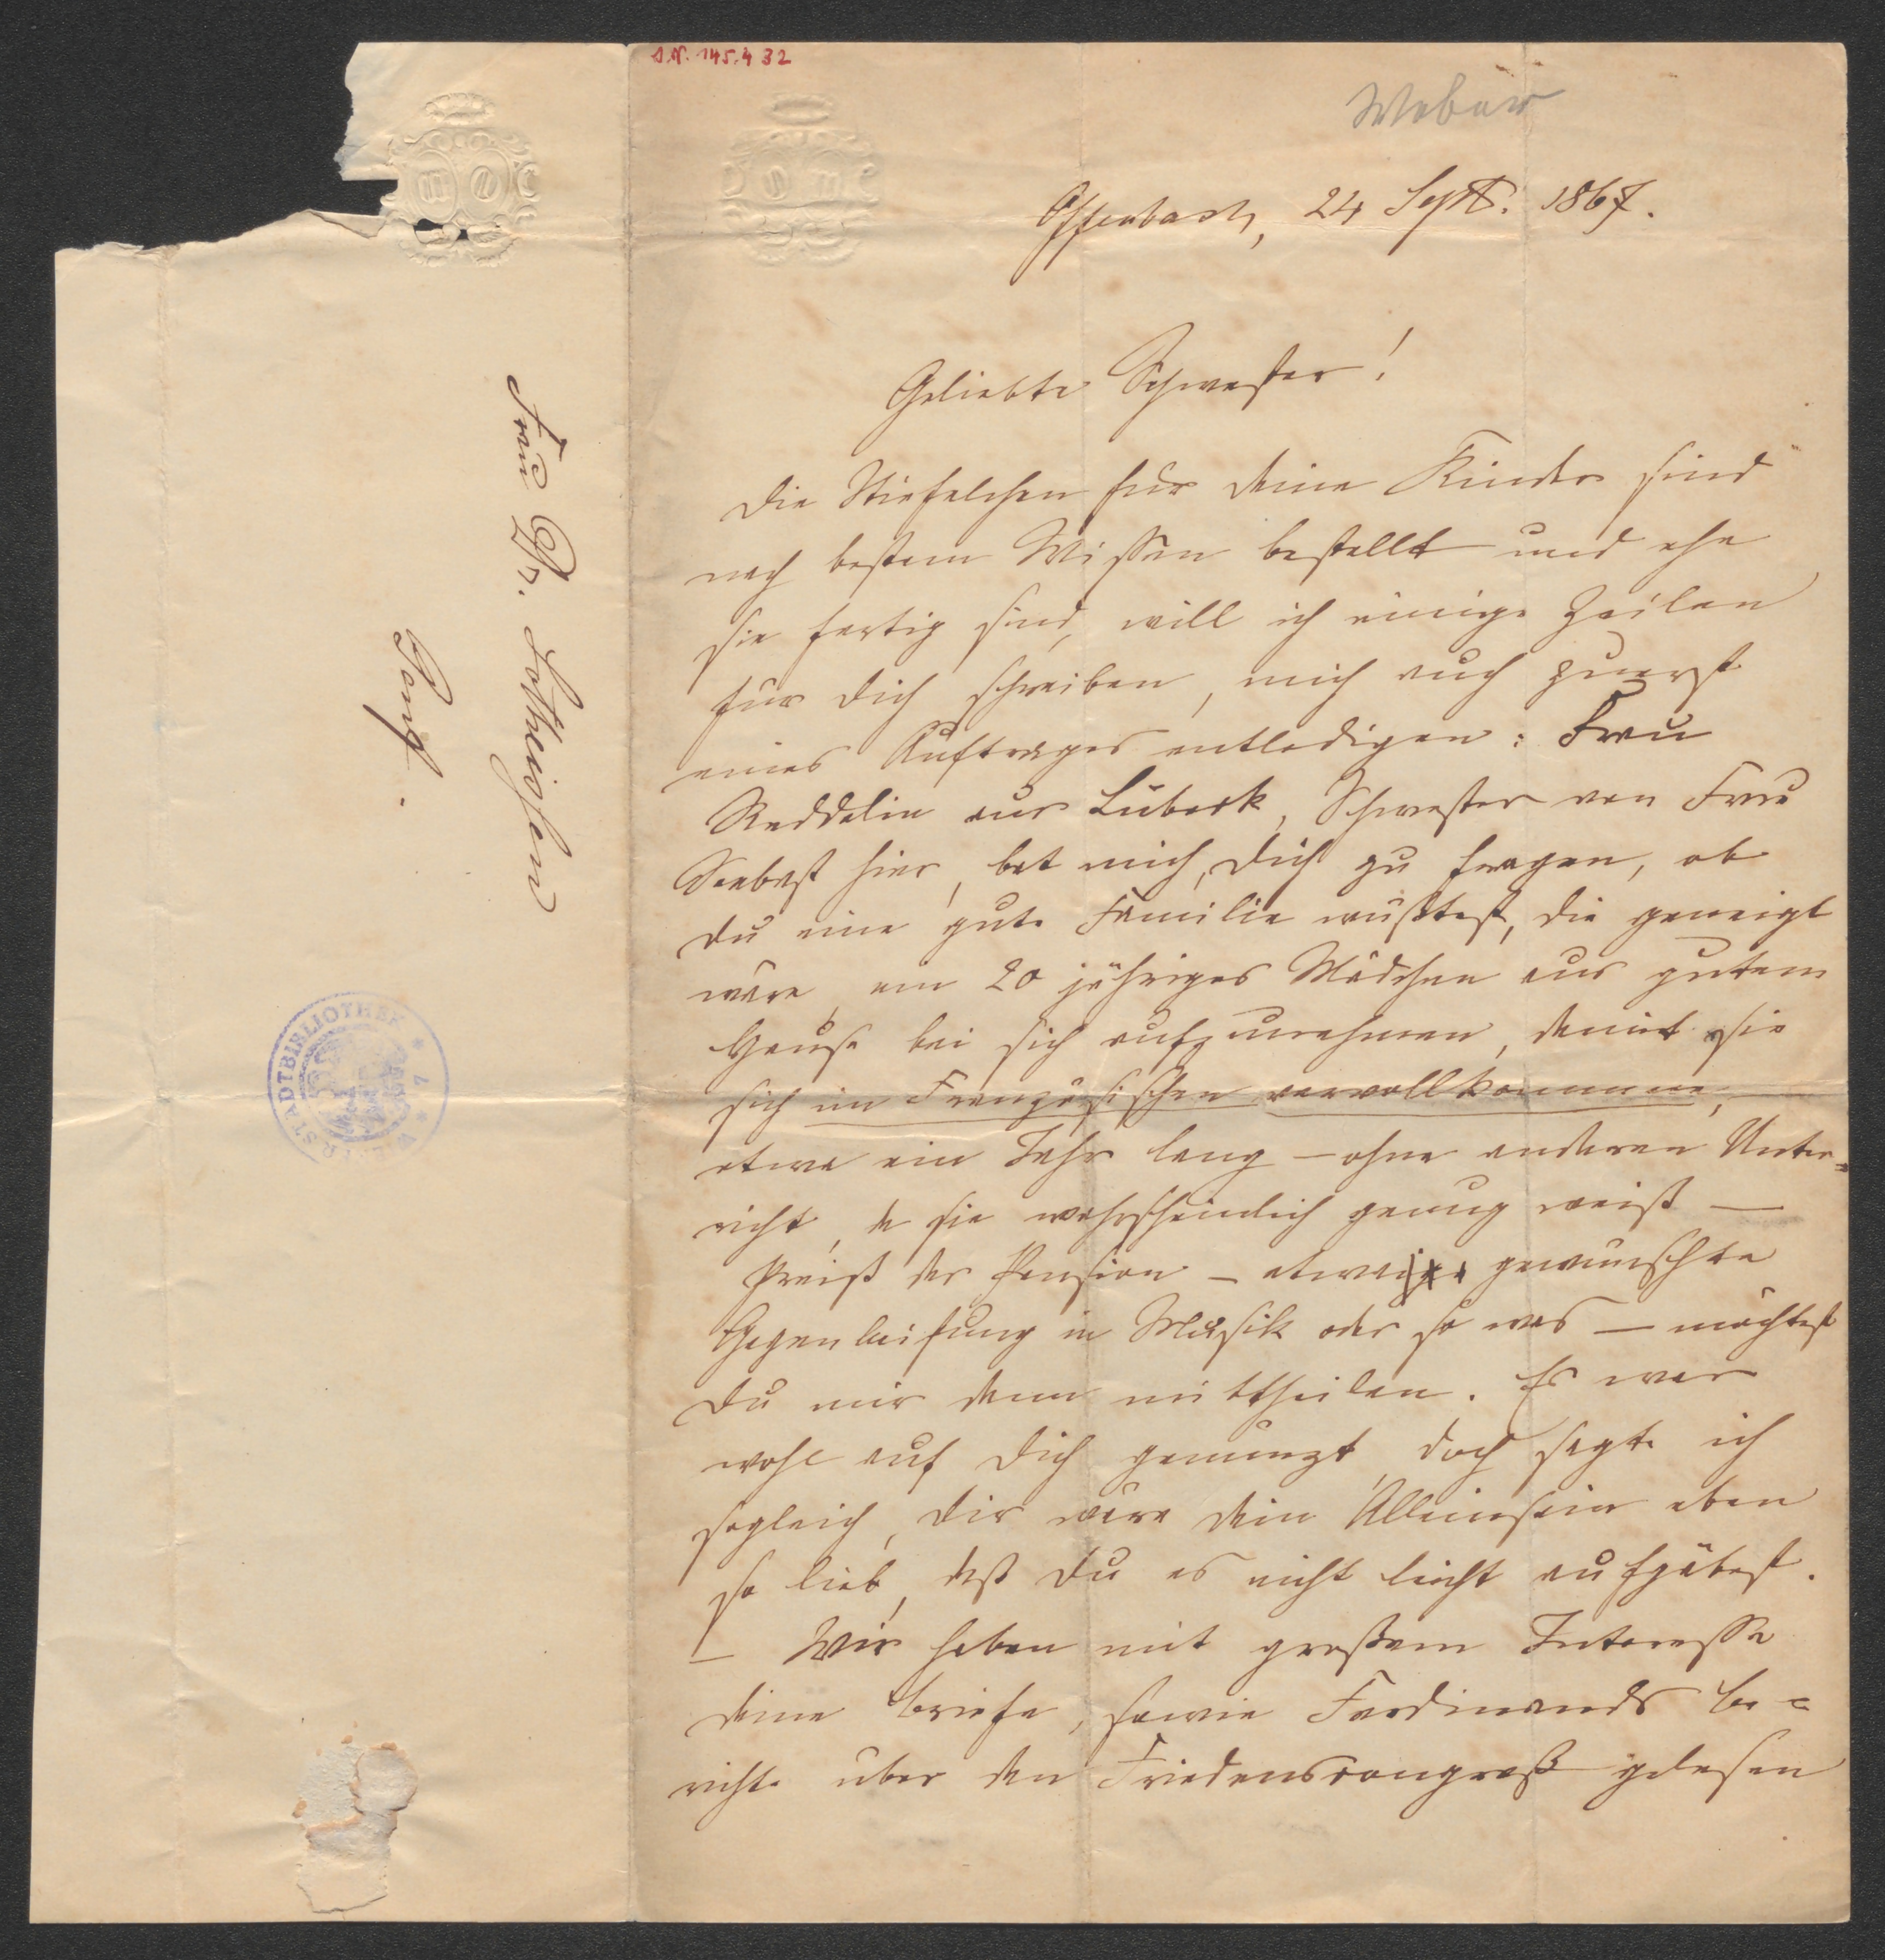 J.N. 145.432
Weber
Offenbach, 24 Sept. 1867.
Geliebte Schwester!
Die Stiefelchen für deine Kinder sind
nach bestem Wissen bestellt und ehe
sie fertig sind, will ich einige Zeilen
für dich schreiben, mich auch zuerst
eines Auftrages entledigen: Frau
Reddelin aus Lübeck, Schwester von Frau
Seebest hier, bat mich, dich zu fragen, ob
du eine gute Familie wüßtest, die geneigt
wäre, ein 20 jähriges Mädchen aus gutem
Hause bei sich aufzunehmen, damit sie
sich im Französischen vervollkommne,
etwa ein Jahr lang – ohne anderen Unter=
richt, da sie wahrscheinlich genug weiß —
Preiß der Pension – etwaige gewünschte
Gegenleistung in Musik oder so was — möchtest
du mir dann mittheilen. Es war
wohl auf dich gemünzt, doch sagte ich
sogleich, dir wäre dein Alleinsein eben
so lieb, daß du es nicht leicht aufgäbest.
– Wir haben mit großem Interesse
deine Briefe, sowie Ferdinands Be=
richte über den Friedenscongreß gelesen
Frau Dr. Lotheißen
Genf.
STADTBIBLIOTHEK